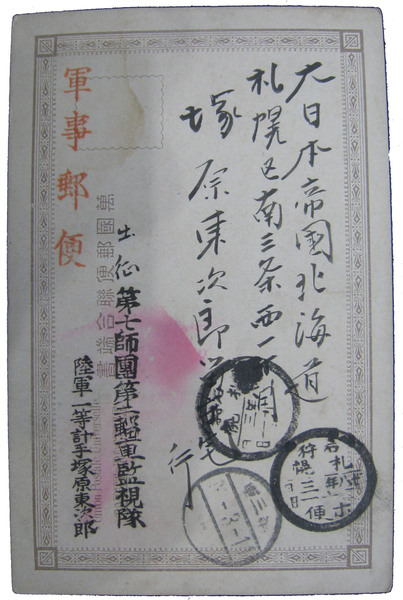 大日本帝國北海道
札幌区南三条西一
塚原東次郎
宅
行
軍事郵便
萬國郵便聯合端書
出征
第七師團第二輜重監視隊
陸軍一等計手塚原東次郎
札幌
三便